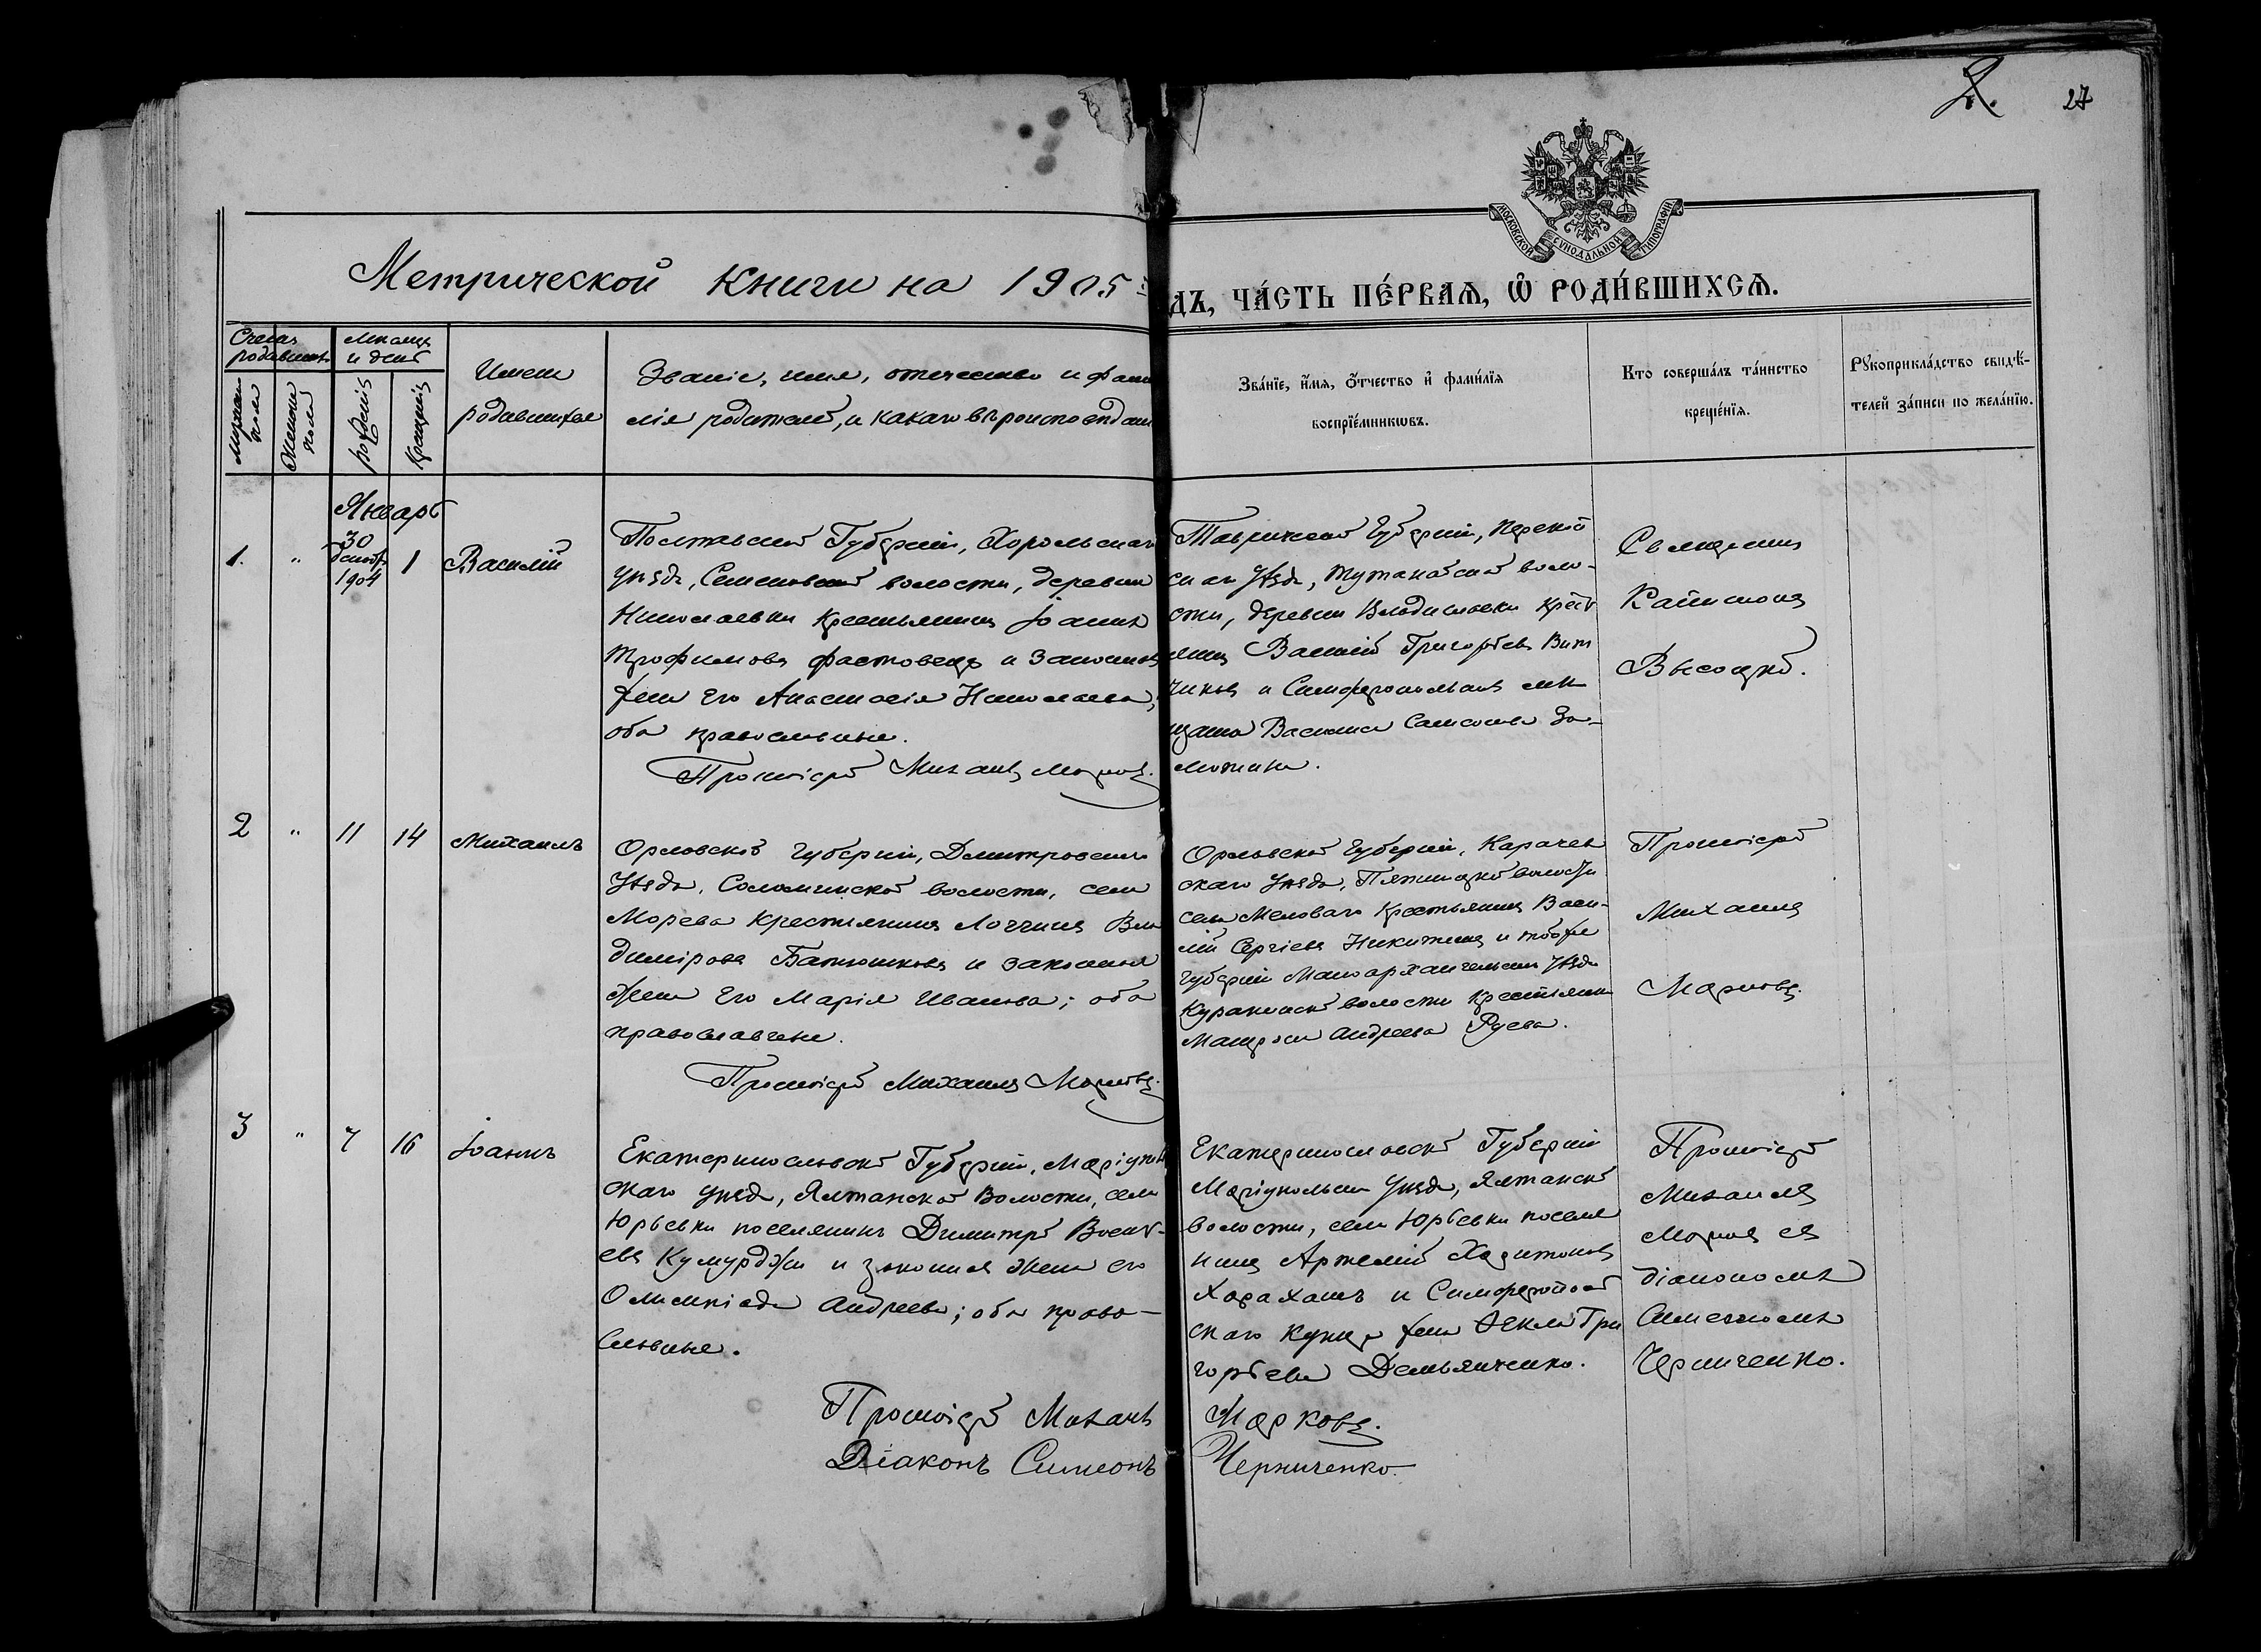 2. 27
МОСКОВСКОЙ СѴНОДАЛЬНОЙ ТИПОГРАФІИ
Метрической книги на 1905
дъ, ча́сть пе́рваѧ, ѡ҆ роди́вшихсѧ.
Счетъ родившихъ
Мѣсяцъ и день
Мужеска пола
Женска пола
рожденія
крещенія
Имена родившихся
Званіе, имя, отчество и фами
лія родителей, и какого вѣроисповѣдан
Зва́нїе, и҆́мѧ, ѻ҆́тчество и҆ фами́лїѧ
воспрїе́мникѡвъ.
Кто соверша́лъ та́инство
креще́нїѧ.
Рꙋкоприкла́дство свидѣ́-
телей за́писи по жела́нїю.
Январь
1. " 30 декаб. 1904 1 Василій
Полтавской Губерніи, Хорольскаго
уѣзда, Семеновской волости, деревни
Николаевки крестьянинъ Іоаннъ
Трофимовъ Фастовецъ и законная
жена его Анастасія Николаева,
оба православные.
Протоіерей Михаилъ Марковъ.
Таврической Губерніи, Переко
скаго Уѣзда, волο-
сти, деревни Владиславки крест
янинъ Василій Григорьевъ Вит
чиковъ и Симферопольская мѣ
щанка Василиса Самсонова За-
можина.
Священникъ
Капитонъ
Высоцкій.
2 " 11 14 Михаилъ
Орловской губерніи, Дмитровскаго
Уѣзда, Соломинской волости, села
Морева крестьянинъ Логгинъ Вла
диміровъ Батюшковъ и законная
жена его Марія Иванова; оба
православные.
Протоіерей Михаилъ Марковъ.
Орловской Губерніи, Карачев
скаго уѣзда, Пятницкой волости
села Меловаго крестьянинъ Васи-
лій Сергіевъ Никитинъ и той же
губерніи Малоархангельскаго Уѣзда
Куракинской волости крестьянка
Андреева Руева.
Протоіерей
Михаилъ
Марковъ.
3 " 7 16 Іоаннъ
Екатеринославской Губерніи, Маріуполь
скаго уѣзда, Ялтанской Волости, села
Юрьевки поселянинъ Димитрій
евъ Кумурджи и законная жена его
Олимпіада Андреева; оба право-
славные.
Екатеринославской Губерніи
Маріупольскаго Уѣзда, Ялтанской
волости, села Юрьевки поселя
нинъ Артемій Харитоновъ
Харахашъ и Симферопол
скаго купца жена Ѳекла Гри
горьева Демьянченко.
Протоіерей
Михаилъ
Марковъ съ
діакономъ
Симеономъ
Черниченко.
Протоіерей Михаилъ Марковъ.
Діаконъ Симеонъ Черниченко.